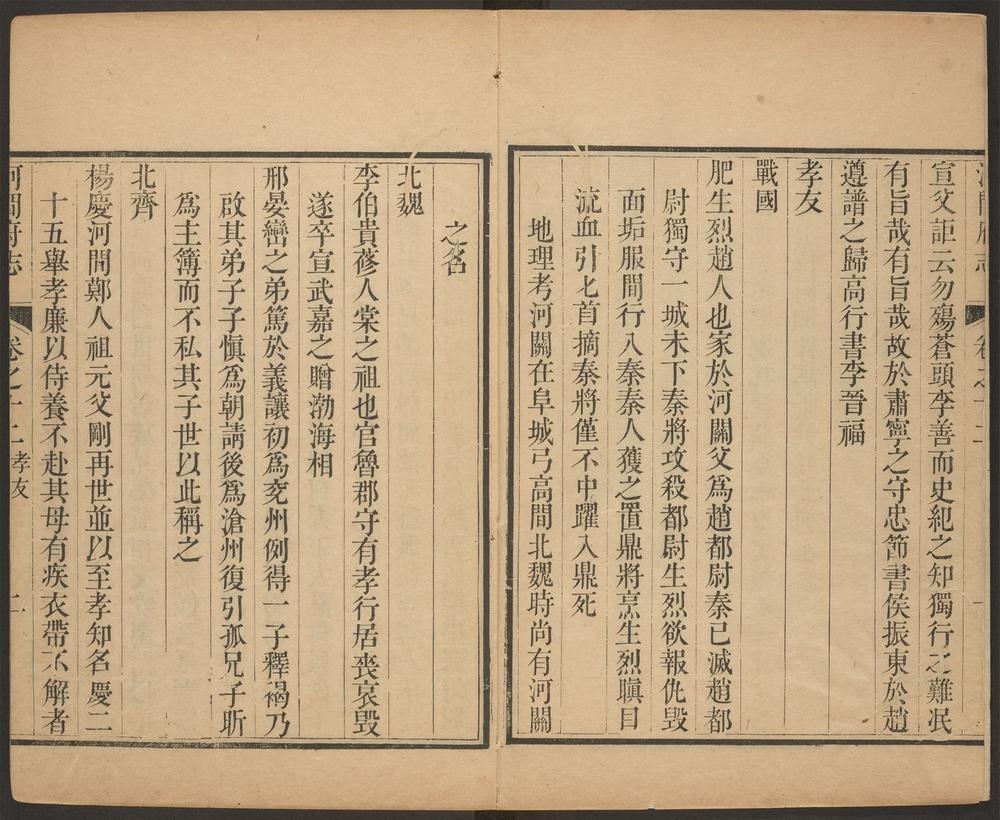 河間府志 卷之十二 一
宣父詎云勿殤蒼頭李善而史紀之知獨行之難泯
有旨哉有旨哉故於肅寧之守忠節書侯振東於趙
遵譜之歸高行書李晉福
孝友
戰國
肥生烈趙人也家於河關父爲趙都尉秦已滅趙都
尉獨守一城未下秦將攻殺都尉生烈欲報仇毁
面垢服間行入秦秦人獲之置鼎將烹生烈瞋目
流血引匕首摘秦將僅不中躍入鼎死
地理考河關在阜城弓高間北魏時尚有河關
之名
北魏
李伯貴蓚人棠之祖也官魯郡守有孝行居喪哀毁
遂卒宣武嘉之贈渤海相
邢晏巒之弟篤於義讓初爲兗州例得一子釋褐乃
啟其弟子子愼爲朝請後爲滄州復引孤兄子昕
爲主簿而不私其子世以此稱之
北齊
楊慶河間鄭人祖元父剛再世並以至孝知名慶二
十五舉孝廉以侍養不赴其母有疾衣帶不解者
河間府志 卷之十二 孝友 二